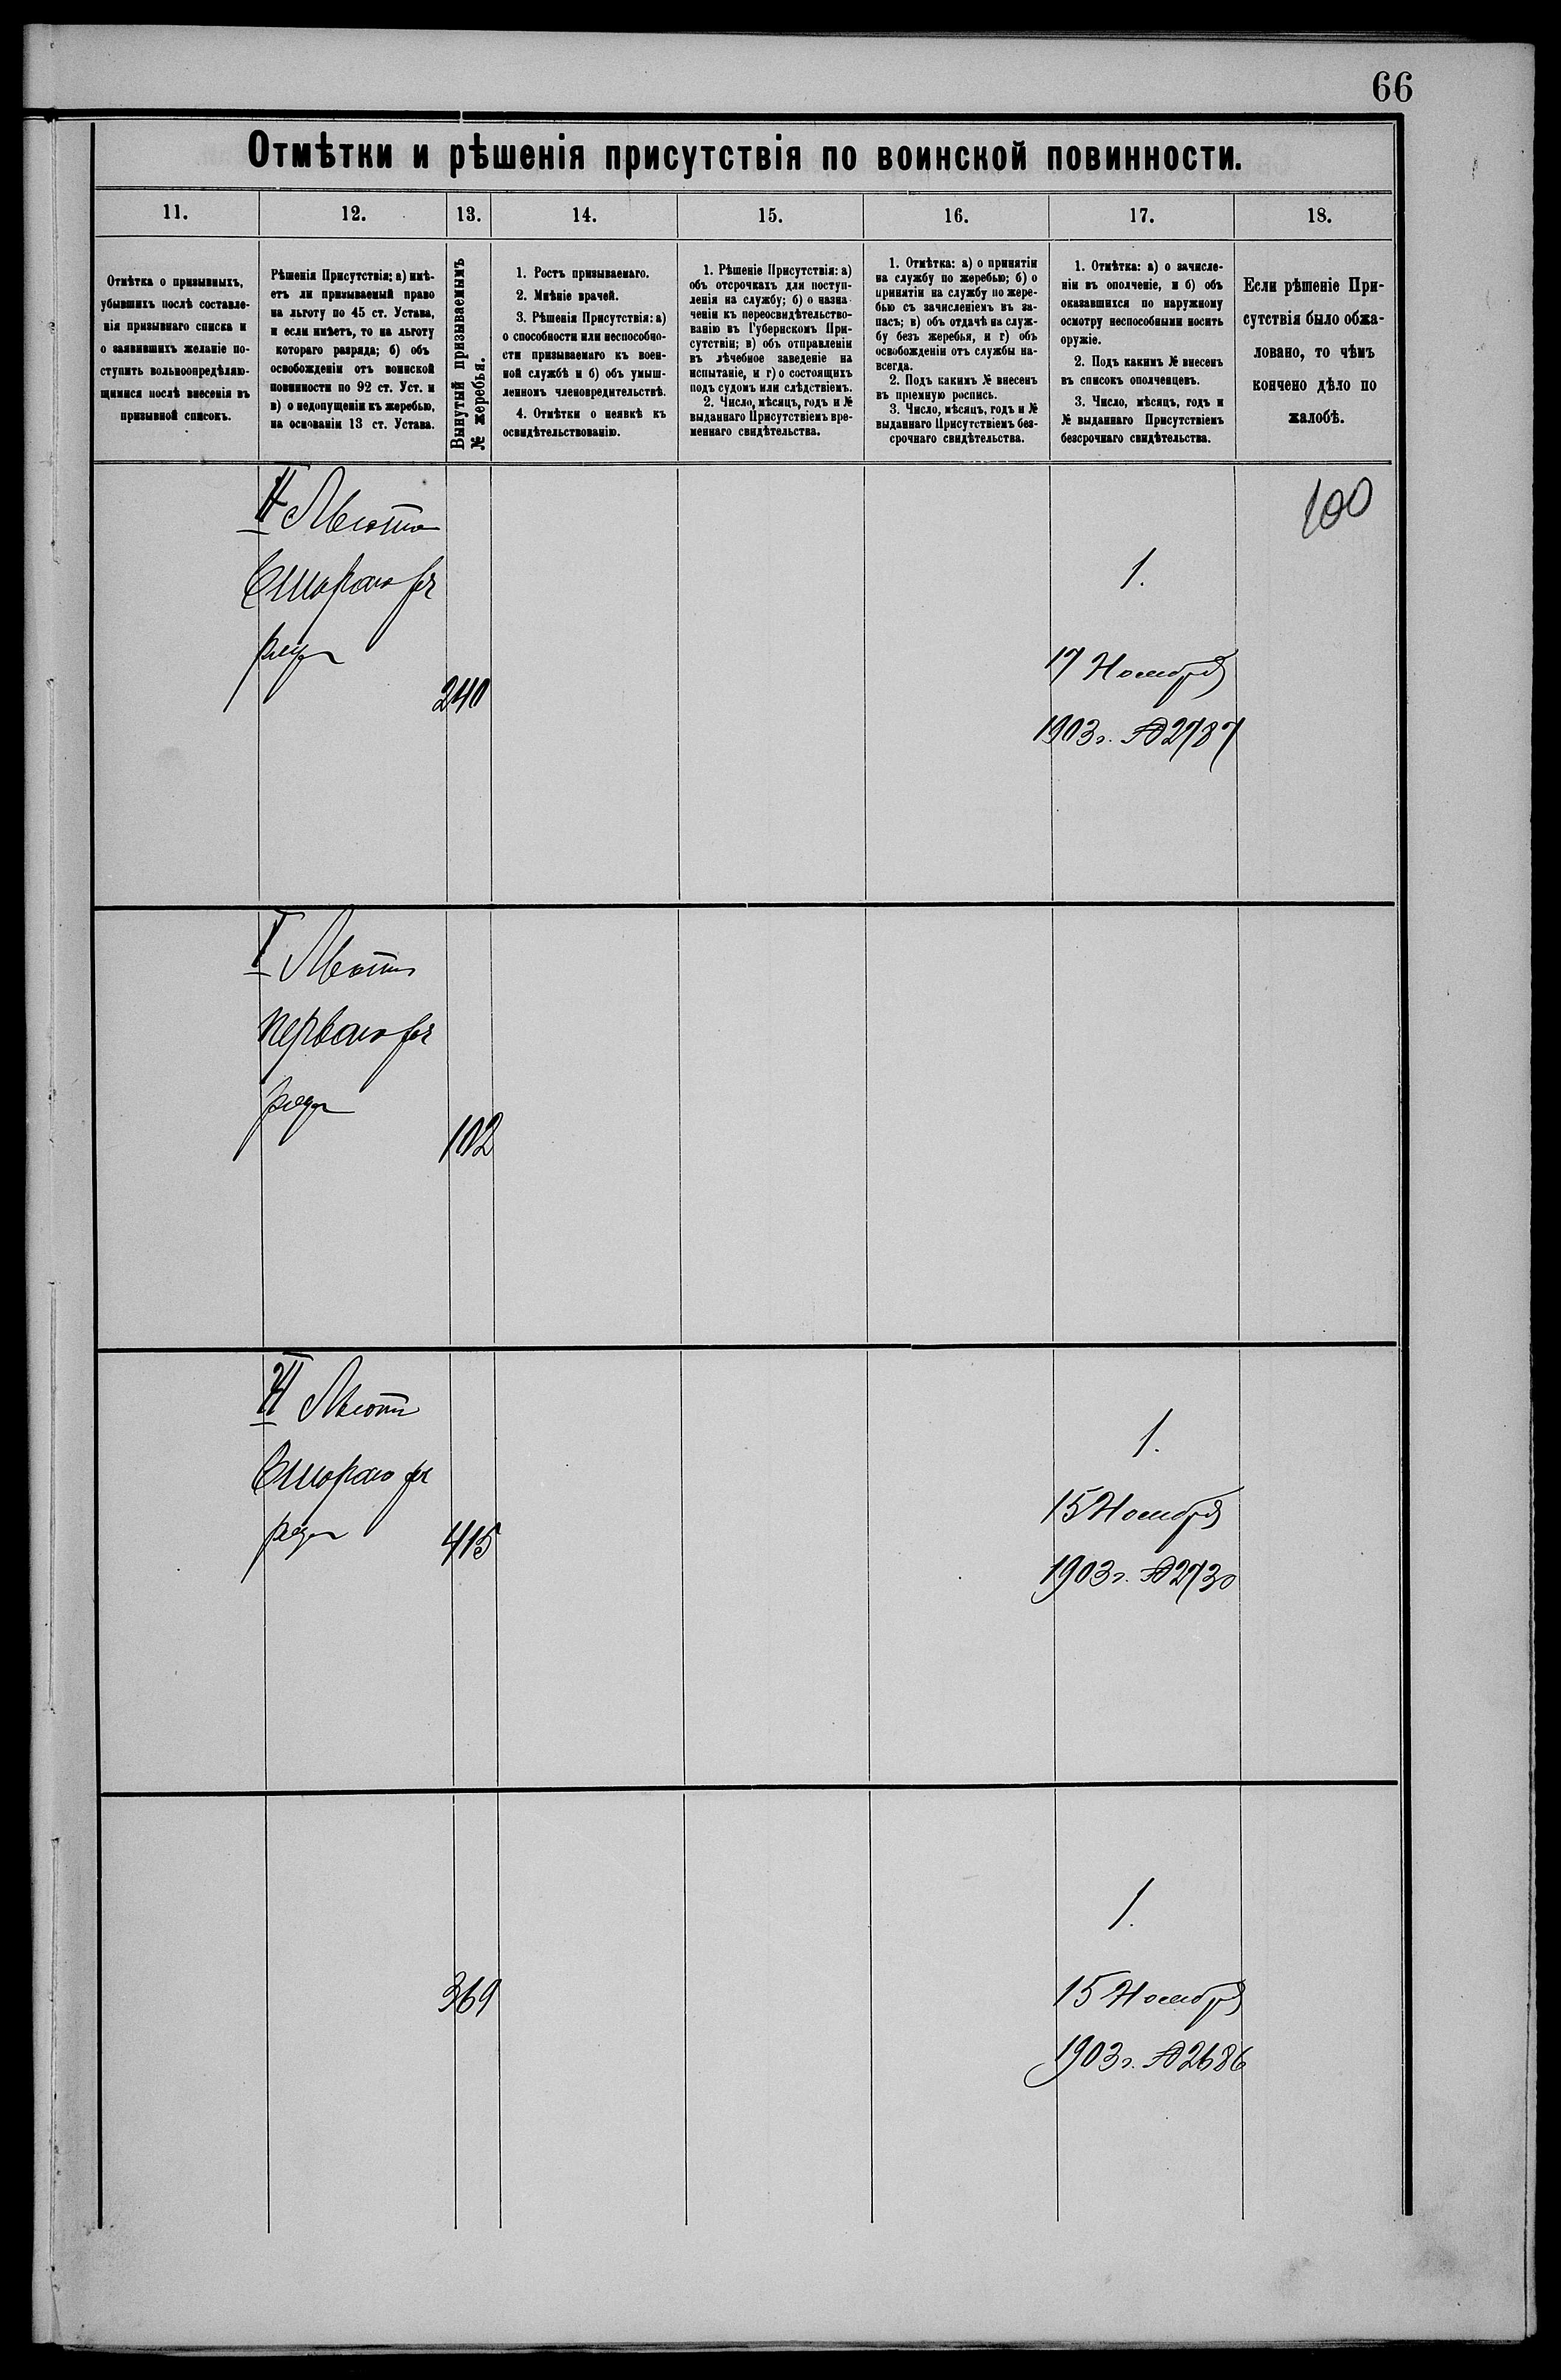 66
Отмѣтки и рѣшенія присутствія по воинской повинности.
11.
12.
13.
14.
15.
16.
17.
18.
Отмѣтка о призывныхъ,
убывшихъ послѣ составле-
нія призывнаго списка и
о заявившихъ желаніе по-
ступить вольноопредѣляю-
щимися послѣ внесенія въ
призывной списокъ.
Рѣшенія Присутствія: а) имѣ-
етъ ли призываемый право
на льготу по 45 ст. Устава,
и если имѣетъ, то на льготу
котораго разряда; б) объ
освобожденіи отъ воинской
повинности по 92 ст. Уст. и
в) о недопущеніи къ жеребью,
на основаніи 13 ст. Устава.
Вынутый призываемымъ
№ жеребья.
1. Ростъ призываемаго.
2. Мнѣніе врачей.
3. Рѣшенія Присутствія: а)
о способности или неспособно-
сти призываемаго къ воен-
ной службѣ и б) объ умыш-
ленномъ членовредительствѣ.
4. Отмѣтки о неявкѣ къ
освидѣтельствованію.
1. Рѣшеніе Присутствія: а)
объ отсрочкахъ для поступ-
ленія на службу; б) о назна-
ченіи къ переосвидѣтельство-
ванію въ Губернскомъ При-
сутствіи; в) объ отправленіи
въ лѣчебное заведеніе на
испытаніе, и г) о состоящихъ
подъ судомъ или слѣдствіемъ.
2. Число, мѣсяцъ, годъ и №
выданнаго Присутствіемъ вре-
меннаго свидѣтельства.
1. Отмѣтка: а) о принятіи
на службу по жеребью; б) о
принятіи на службу по жере-
бью съ зачисленіемъ въ за-
пасъ; в) объ отдачѣ на служ-
бу безъ жеребья, и г) объ
освобожденіи отъ службы на-
всегда.
2. Подъ какимъ № внесенъ
въ пріемную роспись.
3. Число, мѣсяцъ, годъ и №
выданнаго Присутствіемъ без-
срочнаго свидѣтельства.
1. Отмѣтка: а) о зачисле-
ніи въ ополченіе, и б) объ
оказавшихся по наружному
осмотру неспособными носить
оружіе.
2. Подъ какимъ № внесенъ
въ списокъ ополченцевъ.
3. Число, мѣсяцъ, годъ и
№ выданнаго Присутствіемъ
безсрочнаго свидѣтельства.
Если рѣшеніе При-
сутствія было обжа-
ловано, то чѣмъ
кончено дѣло по
жалобѣ.
II Льгота
Второго раз
ряда
240
1.
17 Ноября
1903 г. № 2787
100
I Льгота
первого раз
ряда
102
II Льгота
Второго раз
ряда
415
1.
15 Ноября
1903 г. № 2730
369
1.
15 Ноября
1903 г. № 2686